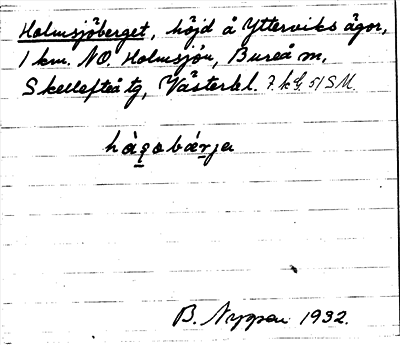 Holmsjöberget, höjd å Ytterviks ägor,
1 km. NO. Holmsjön, Bureå sn,
Skellefteå tg, Västerb. l. 51 SM.
hågabärja
B. Nyman 1932.